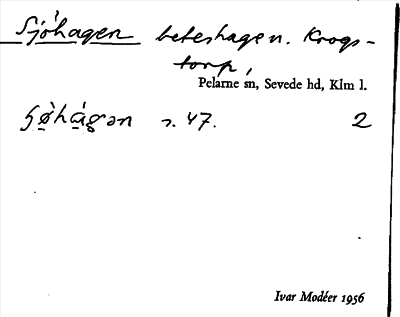 Sjöhagen beteshagen. Krogs-
torp,
Pelarne sn, Sevede hd, Klm l.
s. 47. 2
Ivar Modéer 1956